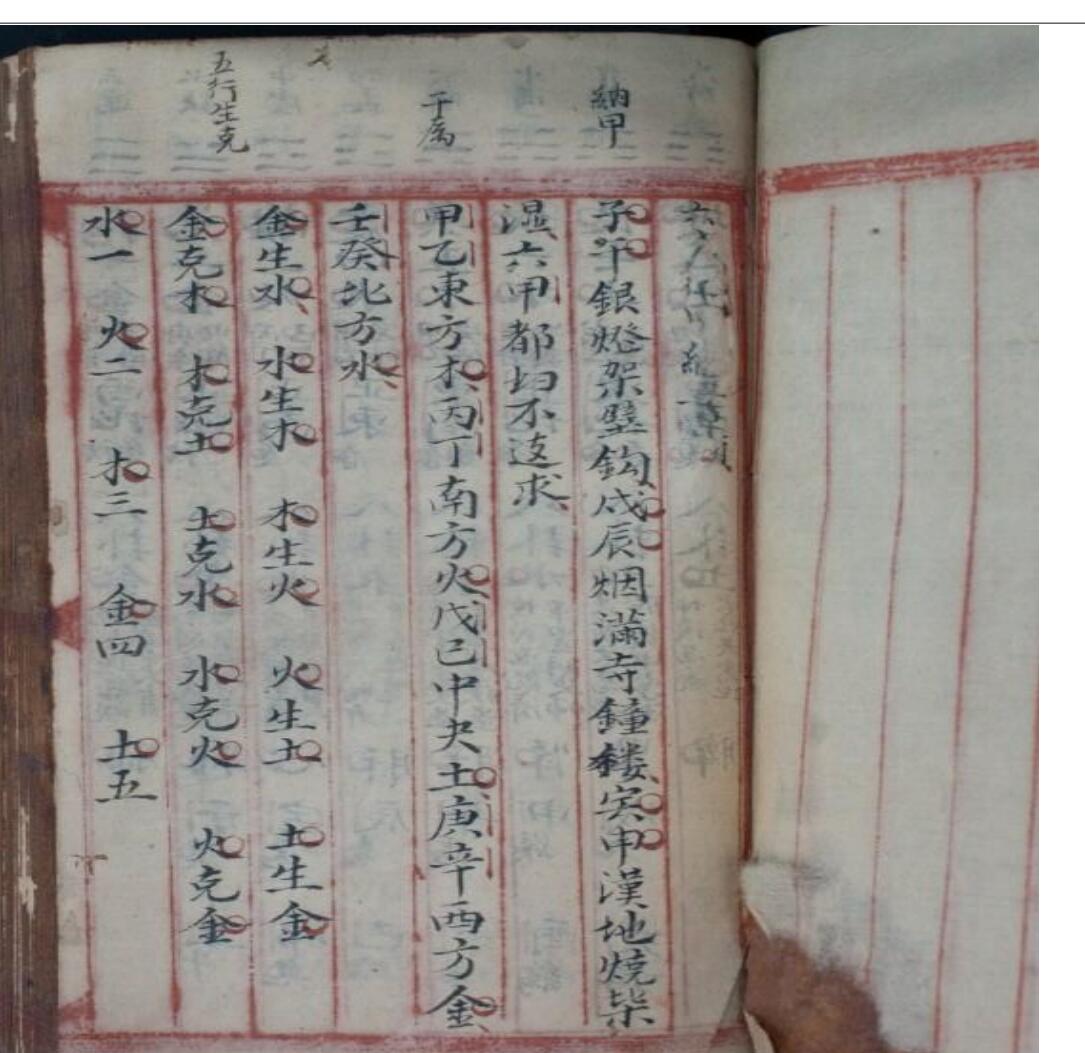 納甲
干属
五行生克
子午銀燈架壁鈎戌辰烟滿寺鐘鏤寅申漢地燒柴
濕六甲都切不这求
甲乙東方木丙丁南方火戊己中央土庚辛西方金
壬癸北方水
金生水 水生木 木生火 火生土 土生金
金克木 木克土 土克水 水克火 火克金
水一 火二 木三 金四 土五